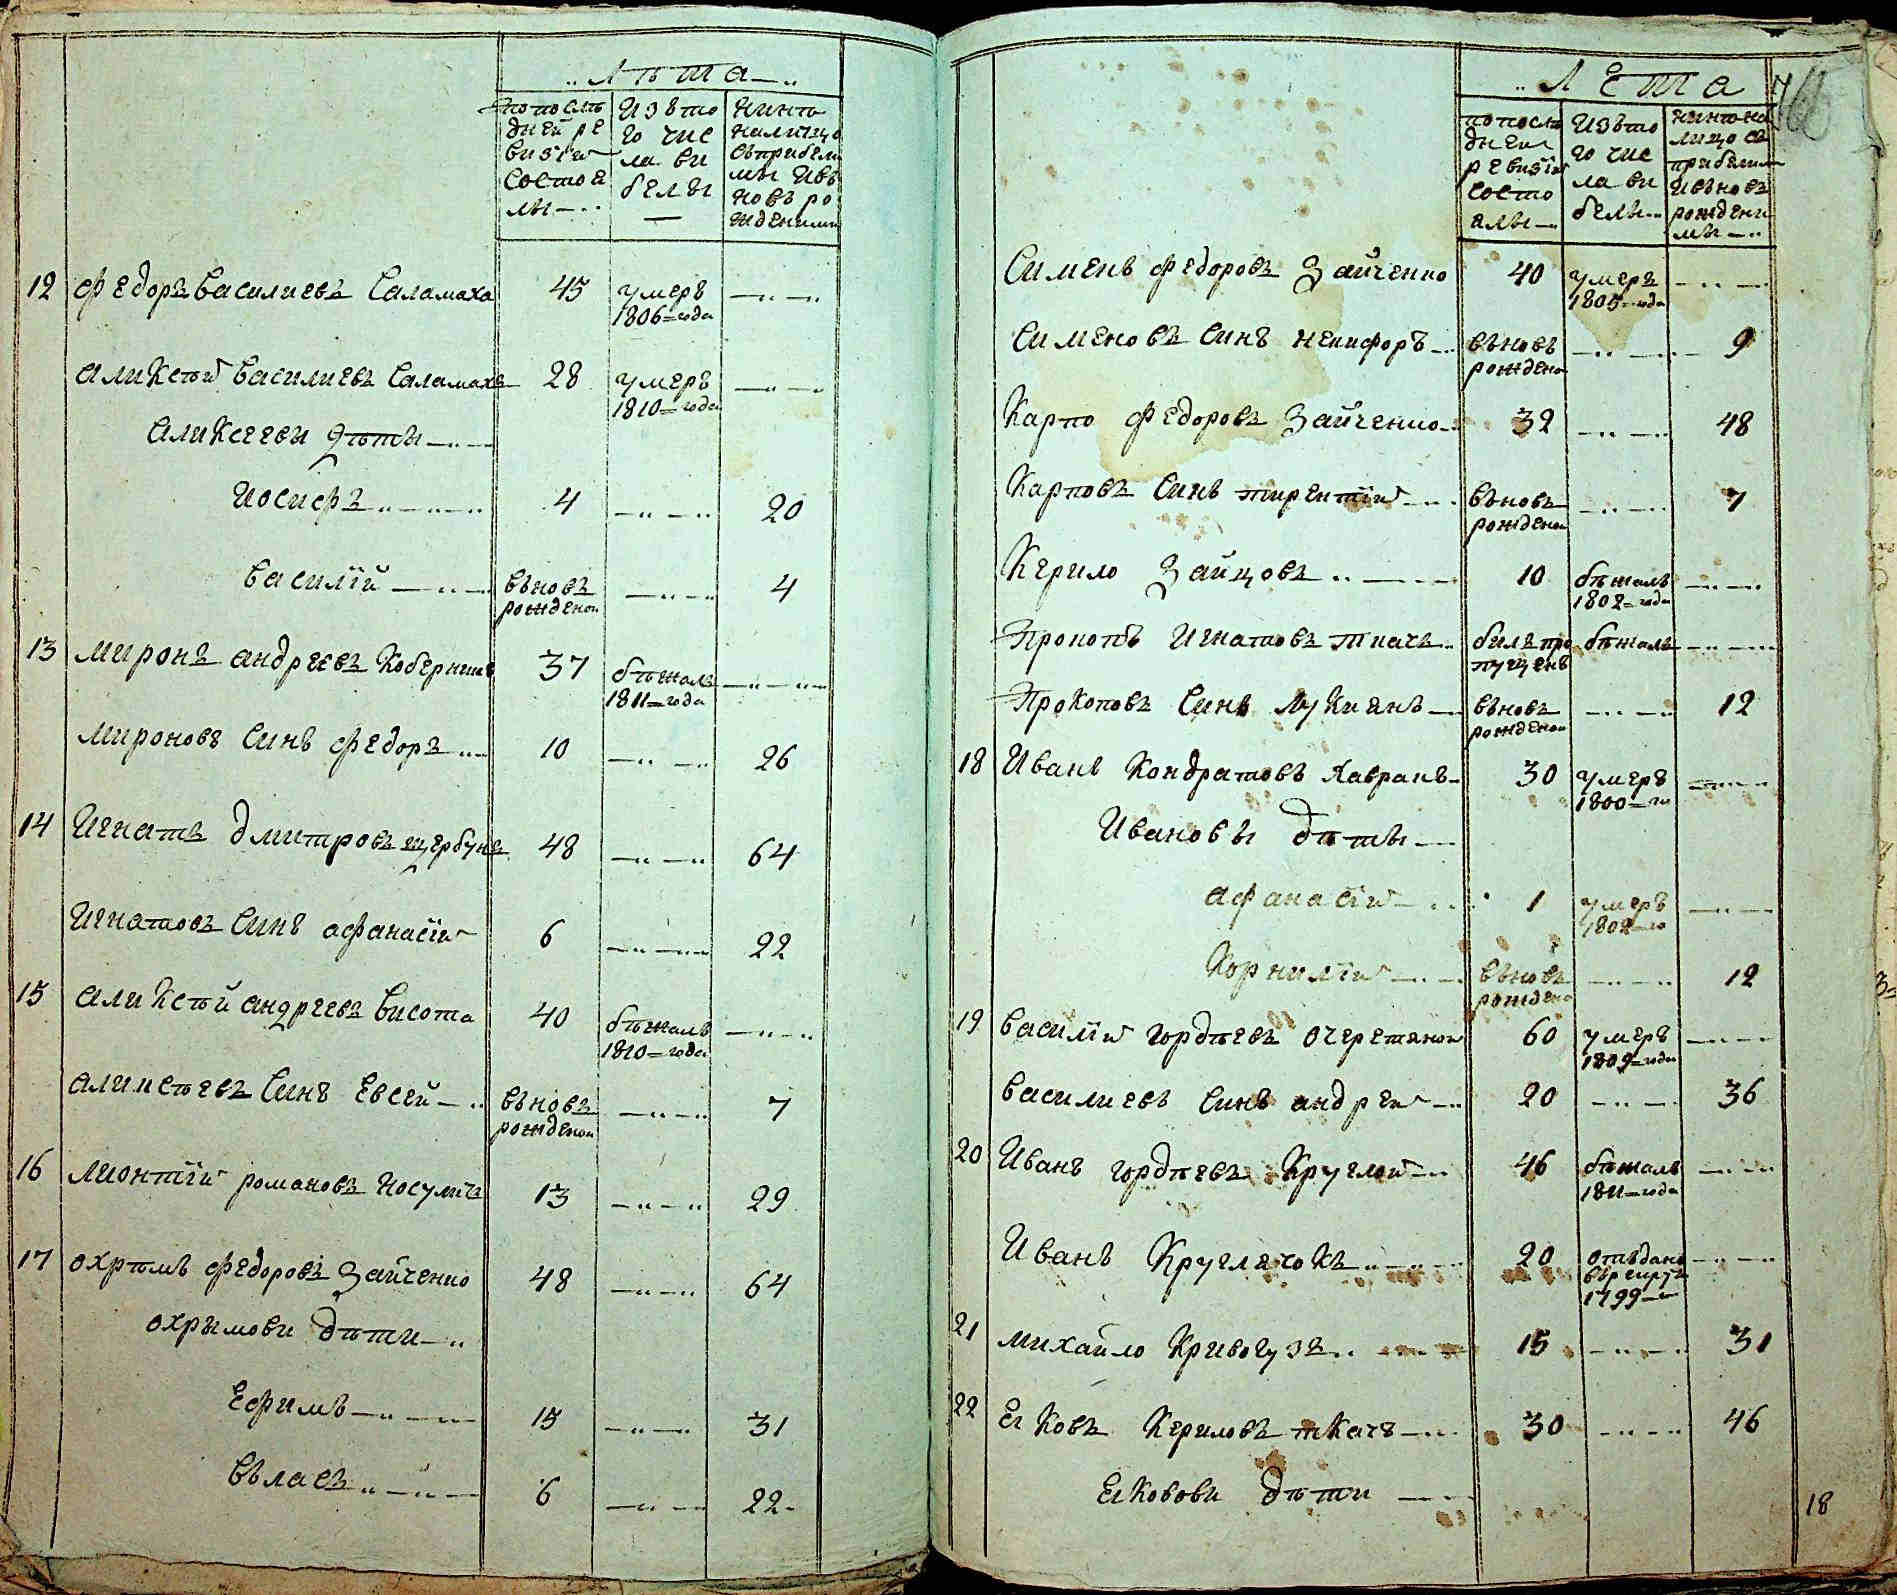 Лѣта
по послѣ
дней ре
визіи
состоя
лы
Изъ то
го чис
ла вы
былы
Нинѣ
на лицо
съ прибилы
мы и вь
новь ро
жденными
12 Федоръ Василиевъ Саламаха 45 умеръ
1806 года
Аликсѣй Василиевъ Саламаха 28 умеръ
1810 года
Аликсеевы дѣты
Иосифъ 4 20
Василій вьновь 4
рожденой
13 Миронъ Андреевъ Коберникъ 37 бѣжалъ
1811 года
Мироновъ синъ Федоръ 10 26
14 Игнатъ Дмитровъ Щербунъ 48 64
Игнатовъ синъ Афанасій 6 22
15 Аликсѣй Андреевъ Висота 40 бѣжалъ
1810 года
Аликсѣевъ синъ Евсей вьновь 7
рожденой
16 Лионтій Романовъ Носуличъ 13 29
17 Охрѣмъ Федоровъ Зайченко 48 64
Охрымови дѣти
Ефимъ 15 31
Вьласъ 6 22
Лета
по послѣ
дней
ревизіи
состо
ялы
Изъ то
го чис
ла вы
былы
нинѣ на
лицо съ
прибилы
и вьновь
рождени
мы
Сименъ Федоровъ Зайченко 40 умеръ
1805 года
Сименовъ синъ Никифоръ вьновь 9
рожденой
Карпо Федоровъ Зайченко 32 48
Карповъ синъ Тирентій вьновь 7
рожденой
Керило Зайцовъ 10 бѣжалъ
1802 года
Прокопъ Игнатовъ Ткачъ билъ про бѣжалъ
пущенъ
Прокоповъ синъ Лукиянъ вьновь 12
рожденой
18 Иванъ Кондратовъ Хавранъ 30 умеръ
1800 го
Ивановы дѣты
Афанасій 1 умеръ
1802 го
Корнилій вьновь 12
рождено
19 Василій Гордѣевъ Очеретяной 60 умеръ
1809 года
Василиевъ синъ Андрей 20 36
20 Иванъ Гордѣевъ Круглой 46 бѣжалъ
1811 года
Иванъ Круглячокъ 20 отъданъ
въ рекруты
1799
21 Михайло Кривогузъ 15 31
22 Ековъ Кериловъ Ткачъ 30 46
Ековови дѣти
18